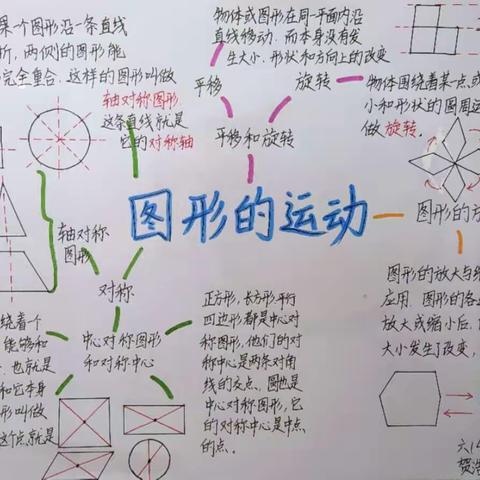 果一个图形沿一条直线
折,两侧的图形能
完全重合.这样的图形叫做
轴对称图形
这条直线就是
它的对称轴
物体或图形在同一平面内沿
直线移动.而本身没有发
生大小.形状和方向上的改变
平移
旋转
物体围绕着某点,或
小和形状的圆周运
做旋转.
平移和旋转
图形的运动
图形的放
轴对称
图形
对称
图形的放大与缩
应用.图形的各
放大或缩小后.
大小发生了改变,
绕着个
能够和
也就是
和它本身
形叫做
这个点就是
中心对称图形
和对称中心
正方形,长方形.平行
四边形都是中心对
称图形,他们的对
称中心是两条对角
线的交点、圆也是
中心对称图形,它
的对称中心是中点
的点.
六(4
贺浩